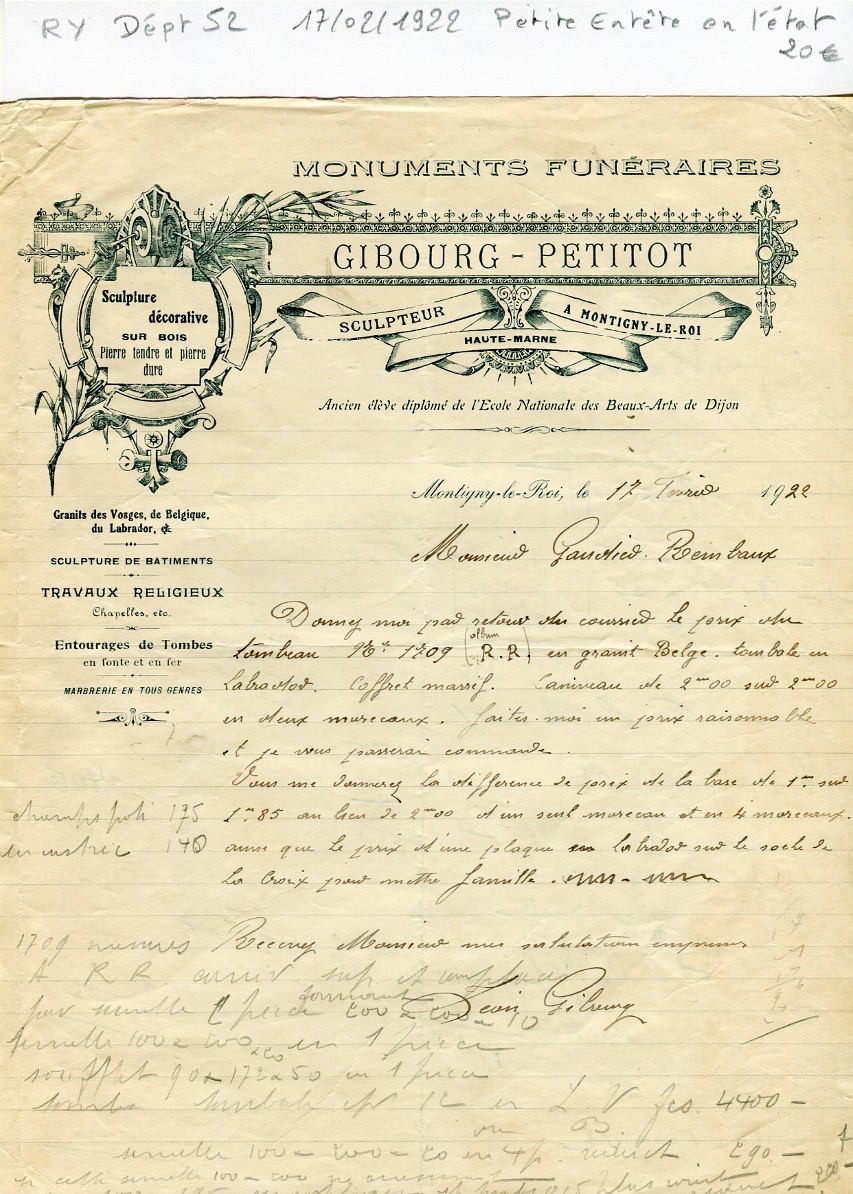 RY Dépt 52 17/02/1922 Petite Entête en l'état
20€
MONUMENTS FUNÉRAIRES
GIBOURG - PETITOT
SCULPTEUR
A MONTIGNY-LE-ROI
HAUTE-MARNE
Ancien élève diplômé de l'Ecole Nationale des Beaux-Arts de Dijon
Sculpture
décorative
SUR BOIS
Pierre tendre et pierre
dure
Granits des Vosges, de Belgique,
du Labrador, &
SCULPTURE DE BATIMENTS
TRAVAUX RELIGIEUX
Chapelles, etc.
Entourages de Tombes
en fonte et en fer
MARBRERIE EN TOUS GENRES
Montigny-le-Roi, le 17 1922
Monsieur Rembaux
Donnez moi par retour du courrier le prix du
tombeau 1709 (album R.R.) en granit Belge. tombale en
Labrador. Coffret massif. Caniveau de 2m00 sur 2m00
en deux morceaux. faites-moi un prix raisonnable
et je vous passerai commande.
Vous me donnerez la différence de prix de la base de 1m sur
1m85 au lieu de 2m00 d'un seul morceau et en 4 morceaux.
ainsi que le prix d'une plaque en labrador sur le socle de
la Croix pour mettre famille.
champs poli 175
140
Recevez Monsieur mes salutations
Gibourg
1709
A RR
par semelle
semelle 100 x 200 en 1 piece
90 x 172 x 50 en 1 piece
fcs 4400 -
ou B.
semelle 100 - 200 - 20 en 4 p. 290 -